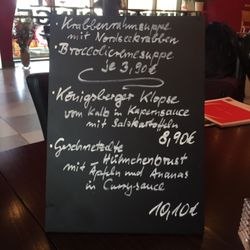 · Krabbenrahmsuppe
mit Nordseekrabben
· Broccolicremesuppe
je 3,90€
· Königsberger Klopse
vom Kalb in Kapernsauce
mit Salzkartoffeln
8,90€
· Geschnetzelte
Hühnchenbrust
mit Äpfeln und Ananas
in Currysauce
10,10€